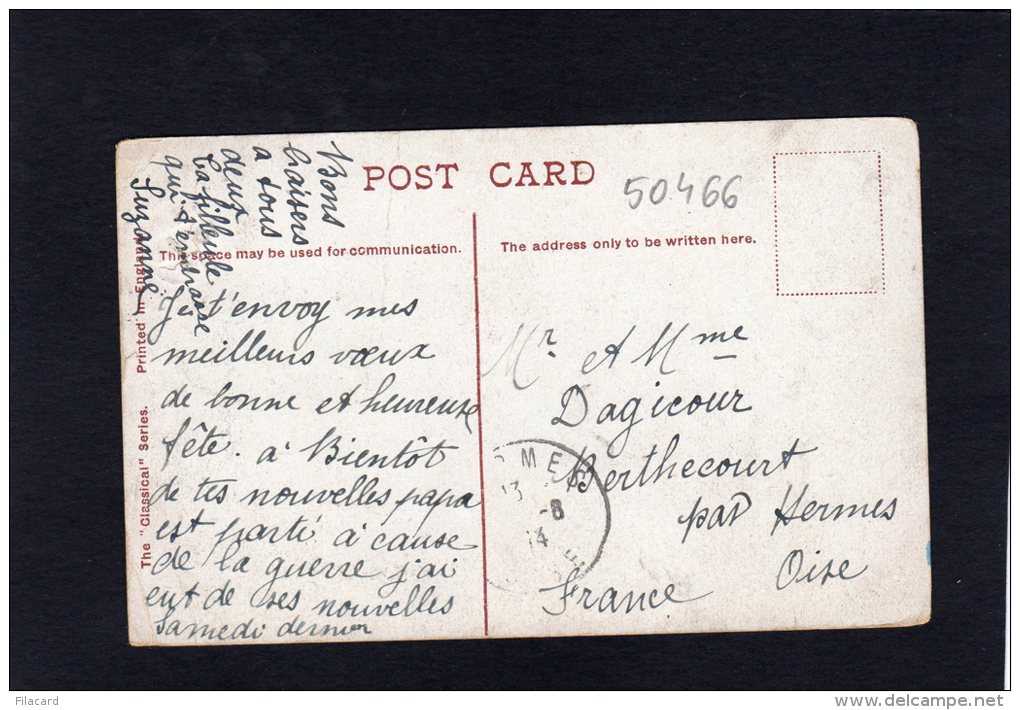 POST CARD
50466
This space may be used for communication.
The address only to be written here.
The "Classical" Series. Printed in England
Bons
baisers
a tous
deux
ta filleule
qui t'embrasse
Suzanne
Je t'envoy mes
meilleurs vœux
de bonne et heureuse
fête. à Bientôt
de tes nouvelles papa
est parti à cause
de la guerre j'ai
eut de ses nouvelles
Samedi dernier
Mr et Mme
Dagicour
Berthecourt
par Hermes
Oise
France
MES
13
-8
14
Filacard
www.delcampe.net